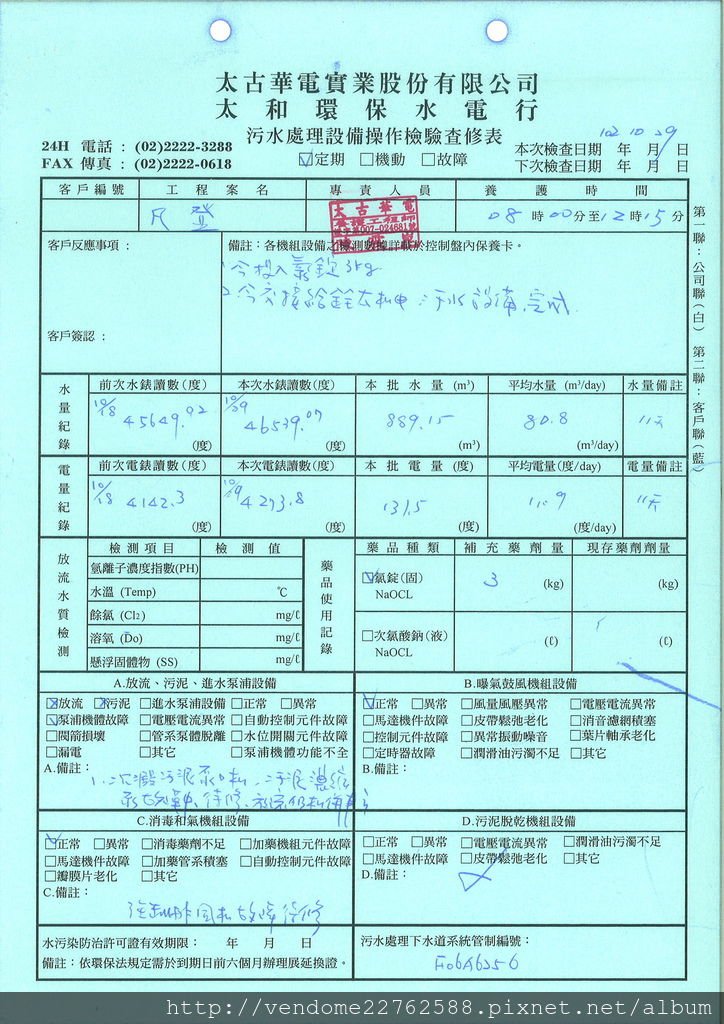 太古華電實業股份有限公司
太和環保水電行
24H 電話：(02)2222-3288
FAX 傳真：(02)2222-0618
污水處理設備操作檢驗查修表
☑定期 □機動 □故障
102 10 29
本次檢查日期 年 月 日
下次檢查日期 年 月 日
客戶編號 工程案名 專責人員 養護時間
凡登
太古華電
08時00分至12時15分
客戶反應事項：
備註：各機組設備之檢測數據詳載於控制盤內保養卡。
1. 今投入氯錠3kg
客戶簽認：
第一聯：公司聯(白) 第二聯：客戶聯(藍)
水量紀錄
前次水錶讀數(度) 本次水錶讀數(度) 本批水量(m³) 平均水量(m³/day) 水量備註
10/18 45649.92 (度)
10/29 46539.07 (度)
889.15 (m³)
80.8 (m³/day)
11天
電量紀錄
前次電錶讀數(度) 本次電錶讀數(度) 本批電量(度) 平均電量(度/day) 電量備註
10/18 4142.3 (度)
10/29 4273.8 (度)
131.5 (度)
11.9 (度/day)
11天
放流水質檢測
檢測項目 檢測值
氫離子濃度指數(PH)
水溫 (Temp) ℃
餘氯 (Cl2) mg/ℓ
溶氧 (Do) mg/ℓ
懸浮固體物 (SS) mg/ℓ
藥品使用記錄
藥品種類 補充藥劑量 現存藥劑劑量
☑氯錠(固) NaOCL 3 (kg) (kg)
□次氯酸鈉(液) NaOCL (ℓ) (ℓ)
A.放流、污泥、進水泵浦設備
☒放流 ☒污泥 □進水泵浦設備 □正常 □異常
☑泵浦機體故障 □電壓電流異常 □自動控制元件故障
□閥箭損壞 □管系泵體脫離 □水位開關元件故障
□漏電 □其它 □泵浦機體功能不全
A.備註：
B.曝氣鼓風機組設備
☑正常 □異常 □風量風壓異常 □電壓電流異常
□馬達機件故障 □皮帶鬆弛老化 □消音濾網積塞
□控制元件故障 □異常振動噪音 □葉片軸承老化
□定時器故障 □潤滑油污濁不足 □其它
B.備註：
C.消毒和氣機組設備
☑正常 □異常 □消毒藥劑不足 □加藥機組元件故障
□馬達機件故障 □加藥管系積塞 □自動控制元件故障
□瓣膜片老化 □其它
C.備註：
D.污泥脫乾機組設備
□正常 □異常 □電壓電流異常 □潤滑油污濁不足
□馬達機件故障 □皮帶鬆弛老化 □其它
D.備註：
水污染防治許可證有效期限： 年 月 日
備註：依環保法規定需於到期日前六個月辦理展延換證。
污水處理下水道系統管制編號：
F06A6256
http://vendome22762588.pixnet.net/album